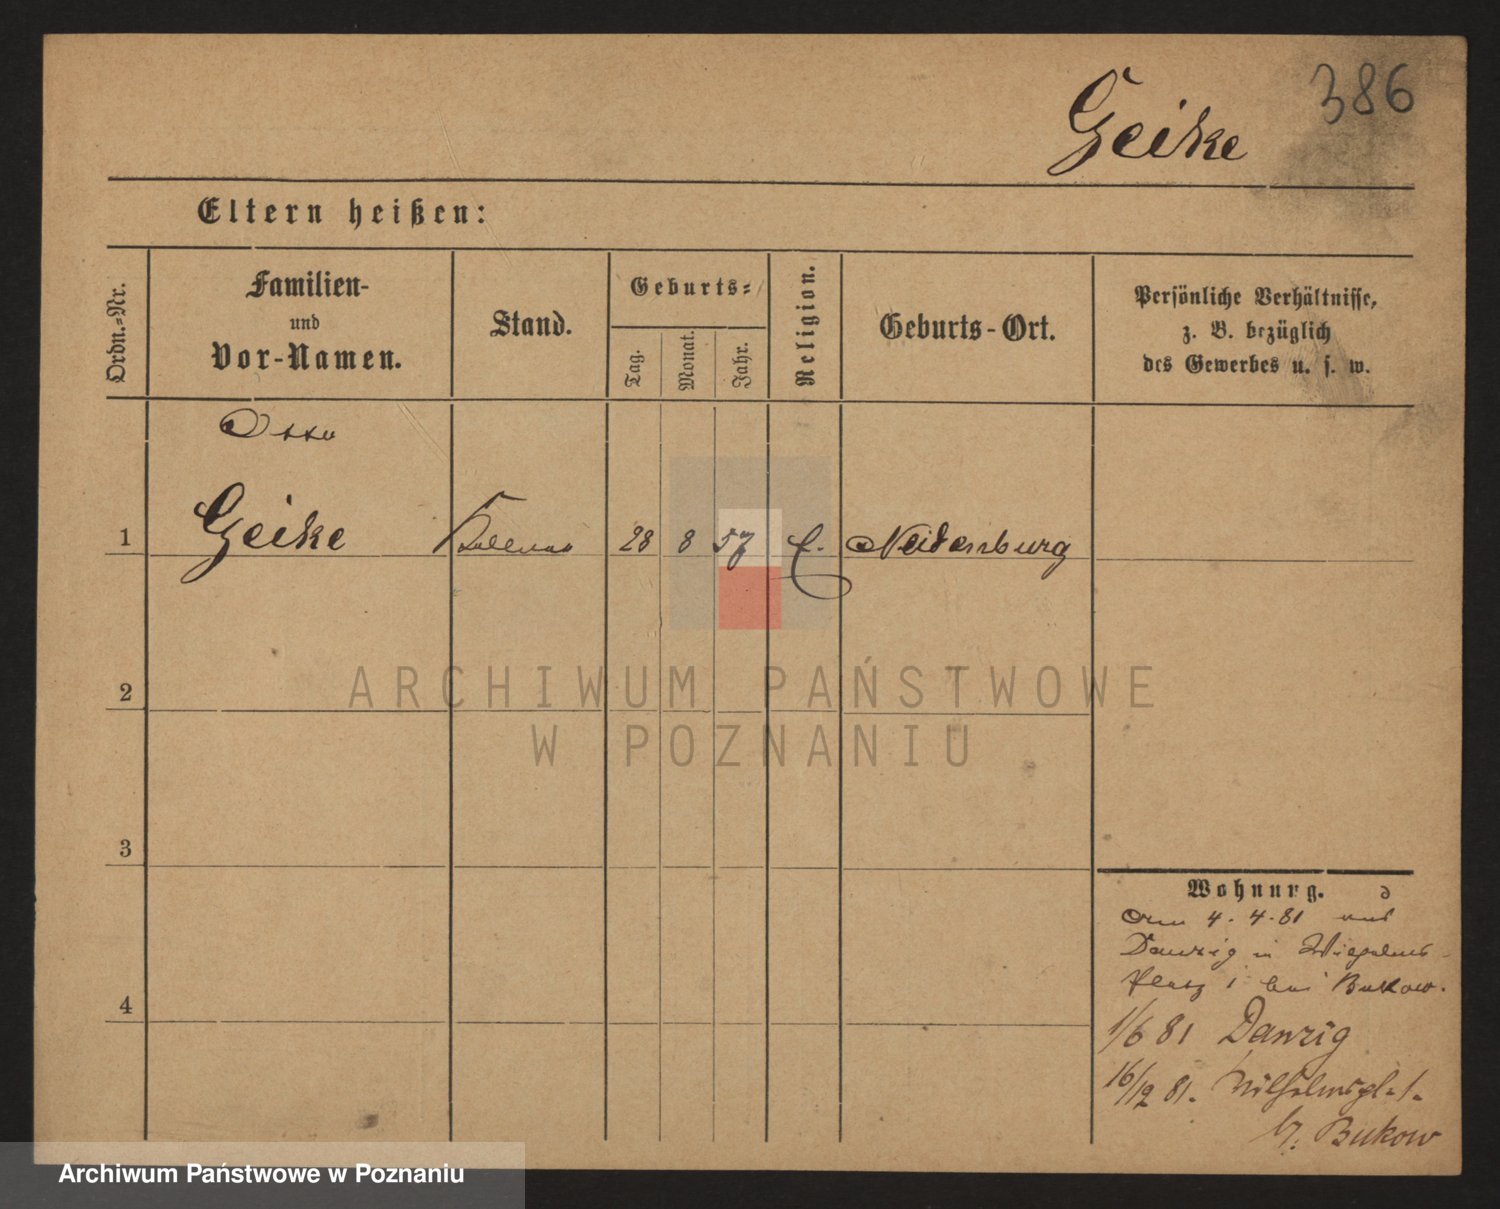 386
Geike
Eltern heißen:
Ordn.-Nr.
Familien-
und
Vor-Namen.
Stand.
Geburts-
Tag.
Monat.
Jahr.
Religion.
Geburts-Ort.
Persönliche Verhältnisse,
z. B. bezüglich
des Gewerbes u. s. w.
Otto
1 Geike Kellner 28 8 57 E. Neidenburg
2
3
4
Wohnung.
4. 4. 81 aus
Danzig in Wilhelms-
Platz 1 bei Bukow.
1/6 81 Danzig
16/12 81. Wilhelmspl. 1.
b. Bukow
ARCHIWUM PAŃSTWOWE
W POZNANIU
Archiwum Państwowe w Poznaniu